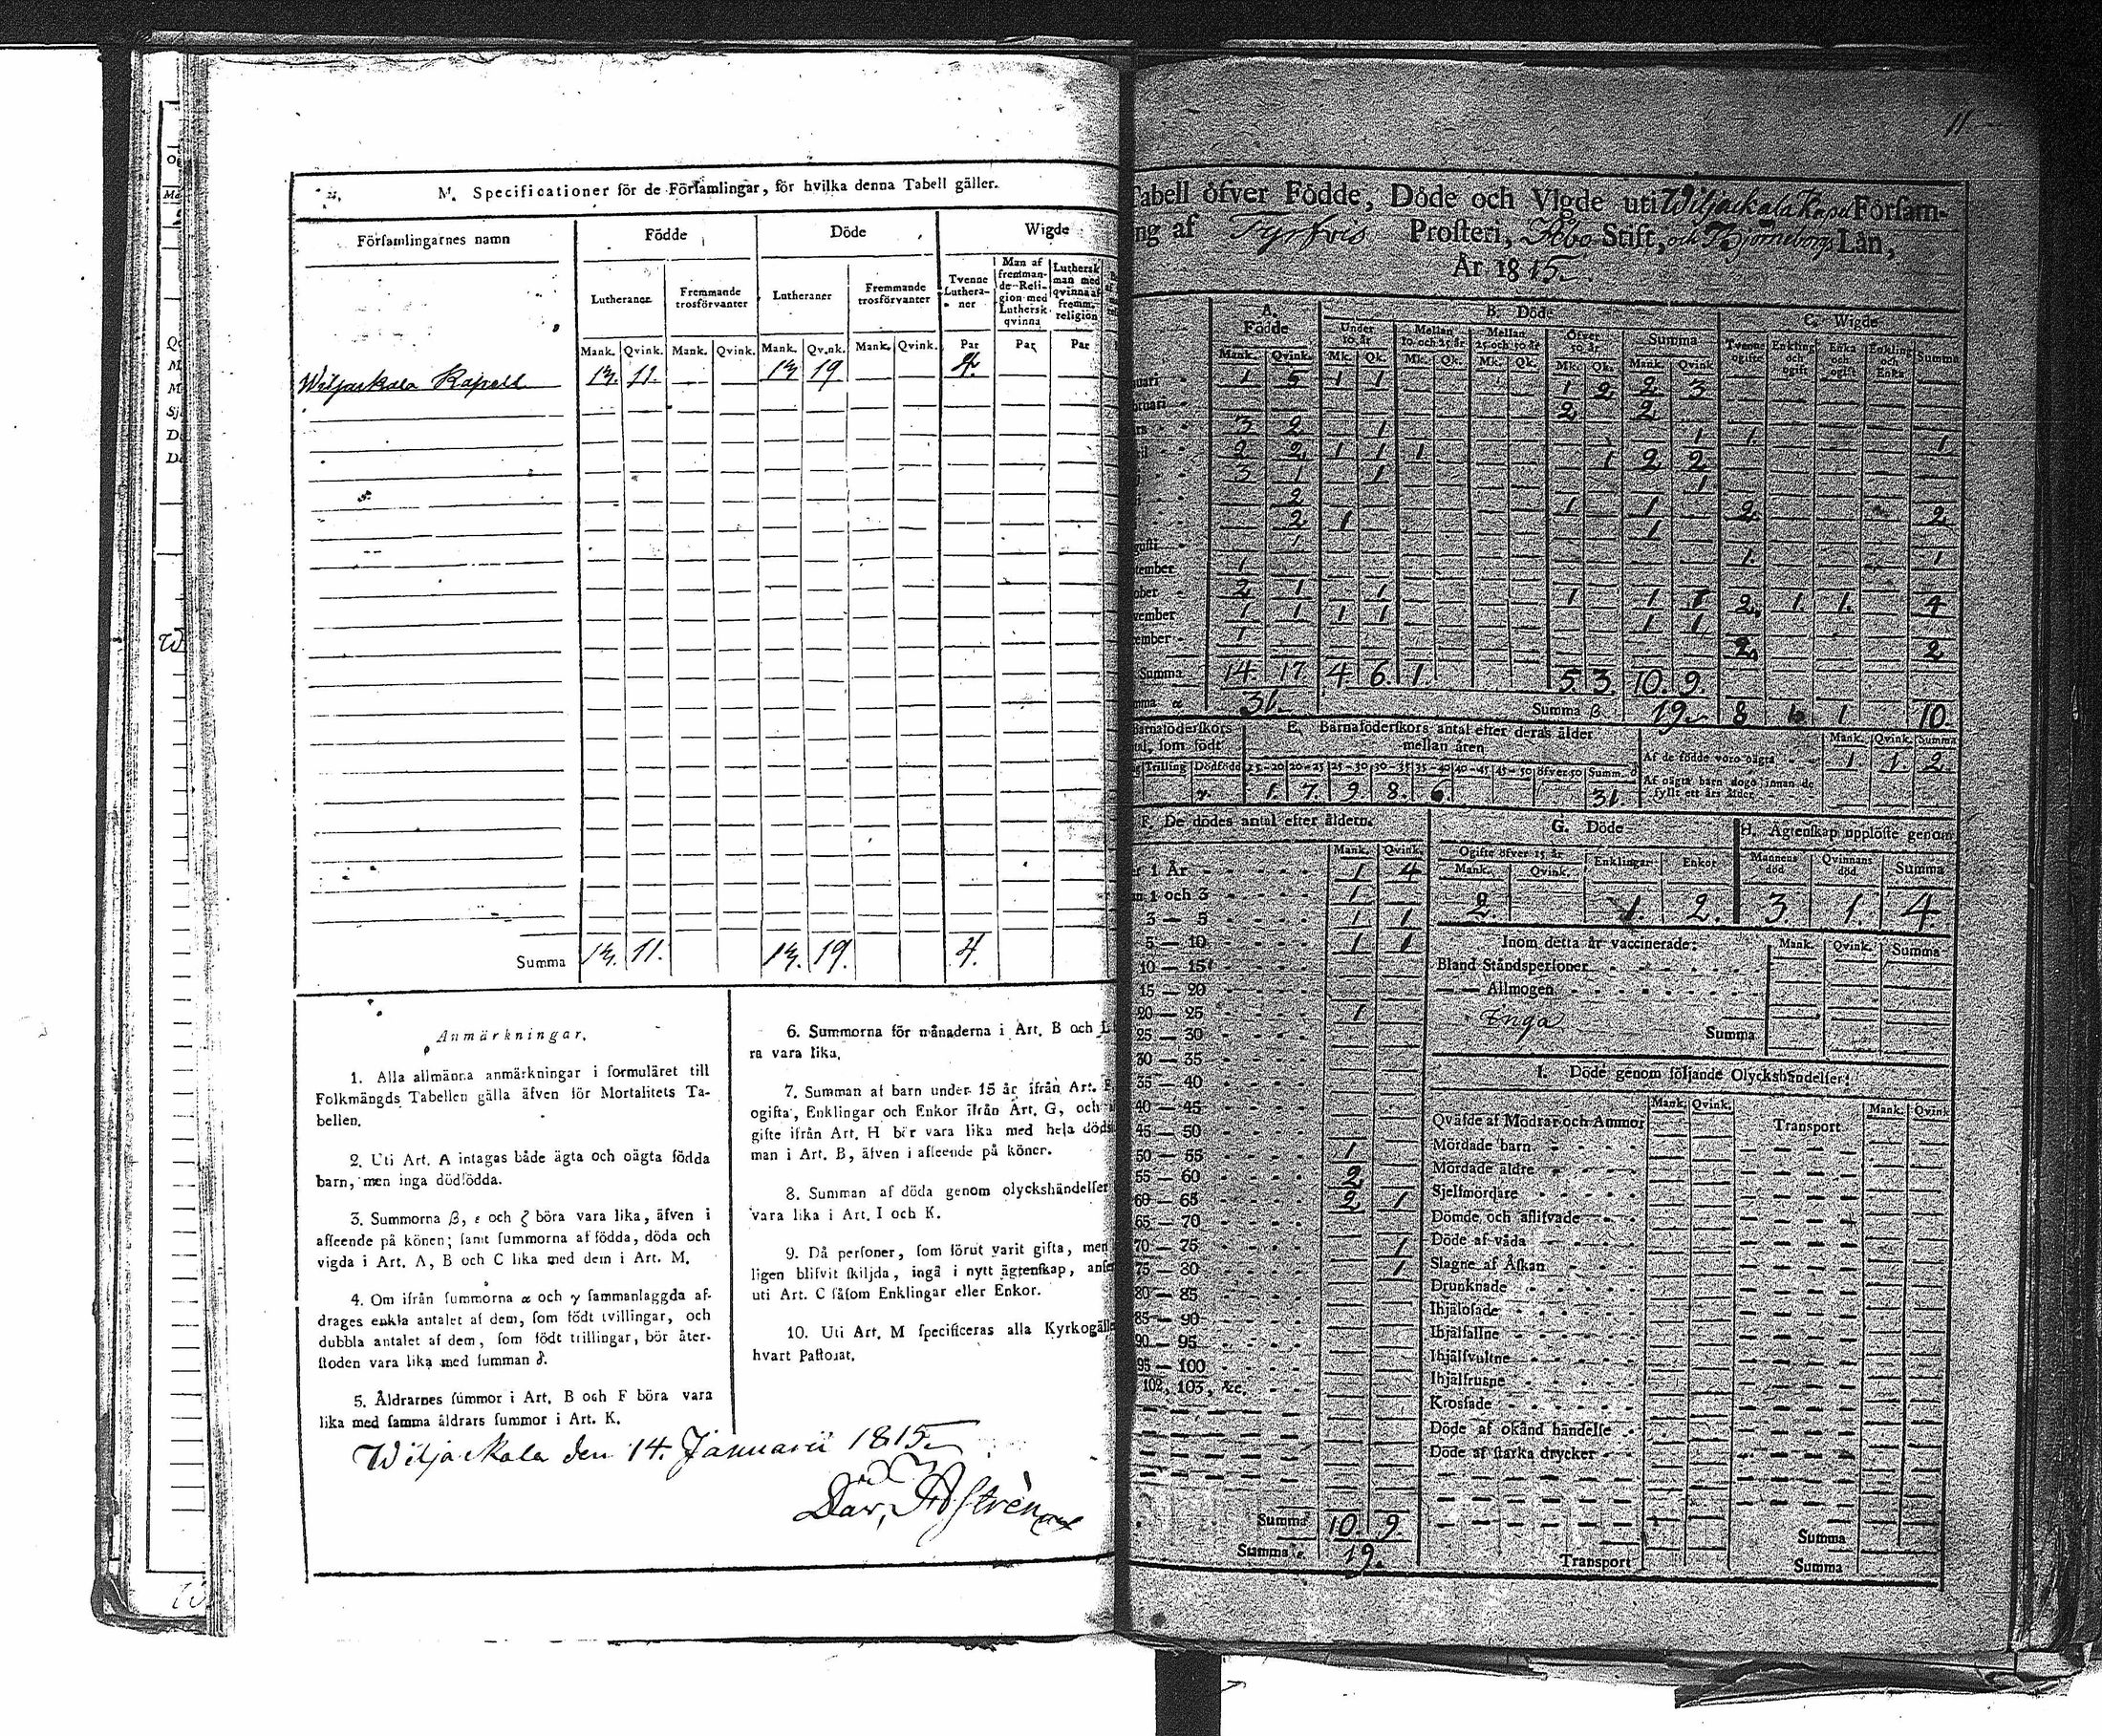 M. Specificationer för de Församlingar, för hvilka denna Tabell gäller.
Församlingarnes namn
Födde
Döde
Wigde
Lutheraner
Fremmande trosförvanter
Lutheraner
Fremmande trosförvanter
Tvenne Lutheraner
Man af fremmande Religion med Luthersk qvinna
Luthersk man med qvinna af fremm. religion
Mank. Qvink. Mank. Qvink. Mank. Qvink. Mank. Qvink. Par Par Par
Wiljaskala Kapell 13. 11. 13 19. 4.
Summa 13. 11. 13. 19. 4.
Anmärkningar.
1. Alla allmänna anmärkningar i formuläret till
Folkmängds Tabellen gälla äfven för Mortalitets Ta-
bellen.
2. Uti Art. A intagas både ägta och oägta födda
barn, men inga dödfödda.
3. Summorna β, ε och ζ böra vara lika, äfven i
afseende på könen; samt summorna af födda, döda och
vigda i Art. A, B och C lika med dem i Art. M.
4. Om ifrån summorna α och γ sammanlaggda af-
drages enkla antalet af dem, som födt tvillingar, och
dubbla antalet af dem, som födt trillingar, bör åter-
stoden vara lika med summan δ.
5. Åldrarnes summor i Art. B och F böra vara
lika med samma åldrars summor i Art. K.
6. Summorna för månaderna i Art. B och L
ra vara lika.
7. Summan af barn under 15 år ifrån Art. F
ogifta, Enklingar och Enkor ifrån Art. G, och
gifte ifrån Art. H bör vara lika med hela döds
man i Art. B, äfven i afseende på könen.
8. Summan af döda genom olyckshändelser
vara lika i Art. I och K.
9. Då personer, som förut varit gifta, men
ligen blifvit skiljda, ingå i nytt ägtenskap, anse
uti Art. C såsom Enklingar eller Enkor.
10. Uti Art. M specificeras alla Kyrkogälle
hvart Pastorat.
Wiljaskala den 14. Januarii 1815.
11
Tabell öfver Födde, Döde och Vigde uti Wiljaskala Kapell Försam-
ng af Tyrfvis Prosteri, Åbo Stift, och Björneborgs Län,
År 1815.
A. Födde
B. Döde
C. Wigde
Under 10 år
Mellan 10 och 25 år
Mellan 25 och 50 år
Öfver 50 år
Summa
Tvenne ogifte
Enkling och ogift
Enka och ogift
Enkling och Enka
Summa
Mank. Qvink. Mk. Qk. Mk. Qk. Mk. Qk. Mk. Qk. Mank. Qvink
nuari 1 5 1 1 1 2 2 3
bruari 2 2
rs 3 2 1 1 1. 1
il 2 2 1 1 1 1 2 2
3 1 1 1
2 1 1 2 2
2 1 1
gusti 1. 1
tember 1
ober 2 1 1 1 1 1 2 1. 1. 4
vember 1 1 1 1 1 1
ember 1 2 2
Summa 14. 17. 4. 6. 1. 5. 3. 10. 9.
mma α 31.
Summa β 19. 8 1 10.
Barnaföderskors
tal, som födt
Trilling Dödfödd
E. Barnaföderskors antal efter deras ålder
mellan åren
15-20 20-25 25-30 30-35 35-40 40-45 45-50 öfver 50 Summ. δ
1. 7. 9. 8. 6. 31.
Mank. Qvink. Summa
Af de födde voro oägta 1 1. 2
Af oägta barn dogo innan de
fyllt ett års ålder
F. De dödes antal efter åldern.
Mank. Qvink.
r 1 År 1 4
an 1 och 3 1
3 — 5 1 1
5 — 10 1 1
10 — 15
15 — 20
20 — 25 1
25 — 30
30 — 35
35 — 40
40 — 45
45 — 50
50 — 55 1
55 — 60 2
60 — 65 2 1
65 — 70
70 — 75 1
75 — 80 1
80 — 85
85 — 90
90 — 95
95 — 100
102, 105, &c.
Summa 10. 9.
Summa ε 19.
G. Döde
Ogifte öfver 15 år
Mank. Qvink.
Enklingar Enkor
2 1. 2.
H. Ägtenskap upplöste genom
Mannens död Qvinnans död Summa
3 1. 4.
Inom detta år vaccinerade:
Mank. Qvink. Summa
Bland Ståndspersoner
— — Allmogen
Inga Summa
I. Döde genom följande Olyckshändelser:
Mank. Qvink. Mank. Qvink
Qväfde af Mödrar och Ammor Transport
Mördade barn
Mördade äldre
Sjelfmördare
Dömde och aflifvade
Döde af våda
Slagne af Åskan
Drunknade
Ihjälösade
Ihjälfallne
Ihjälsvultne
Ihjälfrusne
Krossade
Döde af okänd händelse
Döde af starka drycker
Summa
Transport Summa